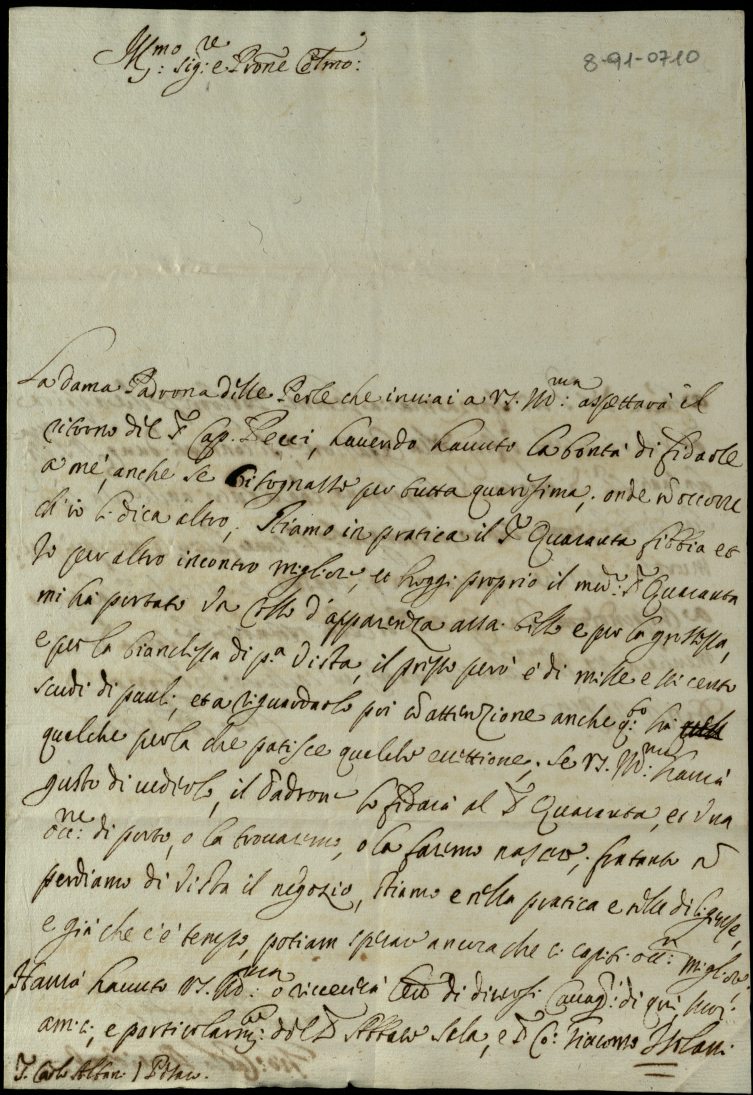 8-91-0710
Ill.mo sig.re e Prone Colmo:
La dama Padrona delle Perle che inviai a VS. Ill.ma aspettarà il
ritorno del S.r Cap. Pecci, havendo havuto la bontà di fidarle
a mé, anche se bisognasse per tutta quaresima, onde nõ occorre
ch'io li dica altro; Stiamo in pratica il S.r Quaranta fibbia et
Io per altro incontro migliore, et hoggi proprio il med.o S.r Quaranta
mi hà portato un Collo d'apparenza assai bello e per la grossezza,
e per la bianchezza di p.a vista, il prezzo però è di mille e seicento
scudi di pauli, et a riguardarlo poi cõ attenzione anche q.to hà
qualche perla che patisce qualche eccettione; se VS. Ill.ma haverà
gusto di vederlo, il Padrone lo fidarà al S.r Quaranta, et una
occ.ne di porto, o la trovaremo, o la faremo nascer; fratanto nõ
perdiamo di vista il negozio, stiamo e nella pratica e nelle diligenze,
e già che c'è tempo, potiam sperar ancora che ci capiti occ.n migliore.
Haverà havuto VS. Ill.ma o riceverà di diversi Cavag.ri di qui, suoi
amici, e particolarm.te del S.r Abbate Sala, e S.r Co: Giacomo Isolani
S. Carlo Albani Pesaro.